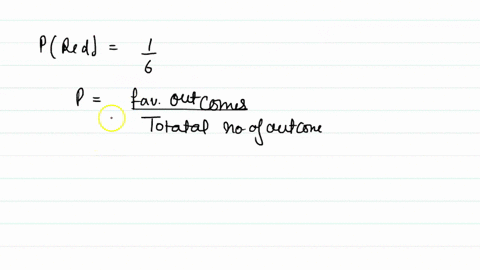 P(Red) = 1/6
P = fav. outcomes / Totatal no of outcone